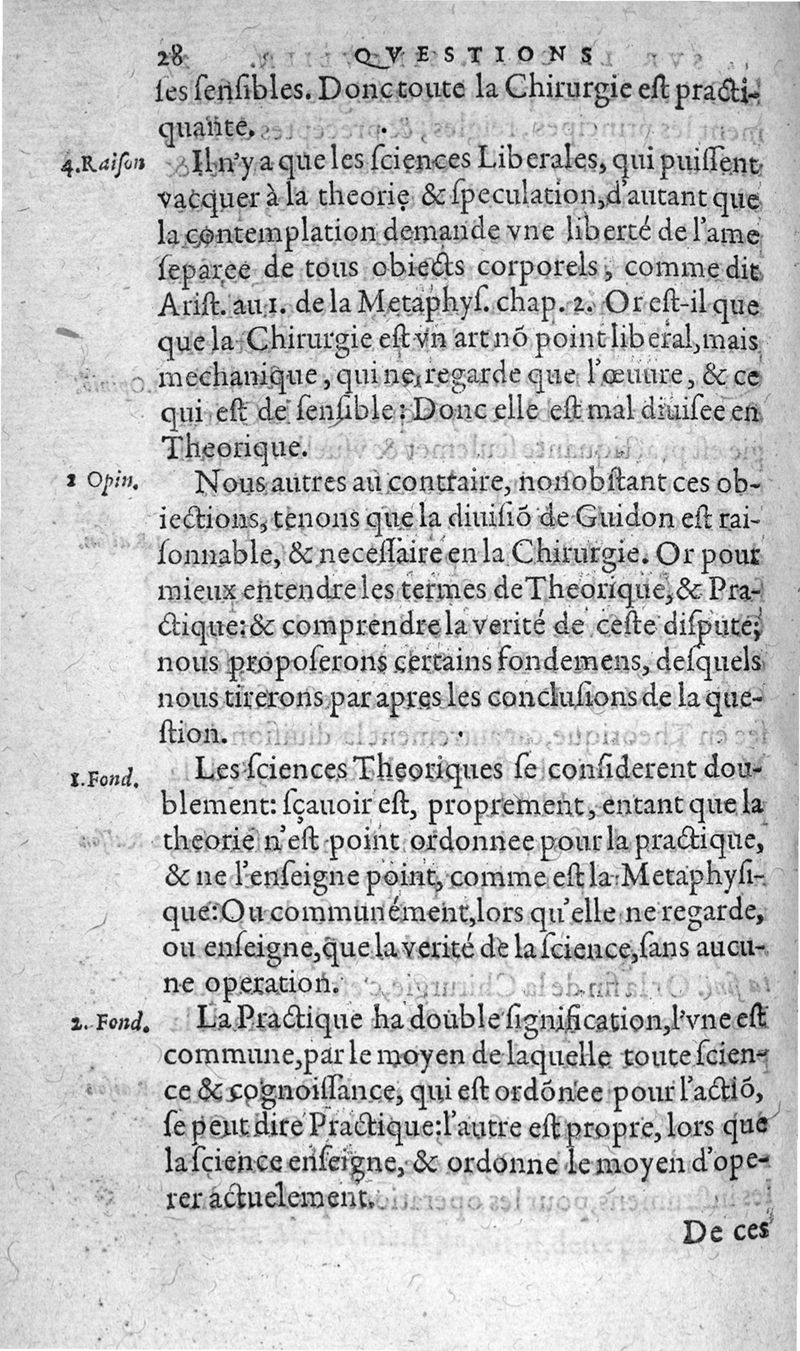 28 QVESTIONS
ſes ſenſibles. Donc toute la Chirurgie eſt practi-
quante.
4. Raiſon Il n'y a que les ſciences Liberales, qui puiſſent
vacquer à la theorie & ſpeculation, d'autant que
la contemplation demande vne liberté de l'ame
ſeparee de tous obiects corporels, comme dit
Ariſt. au 1. de la Metaphyſ. chap. 2. Or eſt-il que
que la Chirurgie eſt vn art nõ point liberal, mais
mechanique, qui ne regarde que l'œuure, & ce
qui eſt de ſenſible: Donc elle eſt mal diuiſee en
Theorique.
2 Opin. Nous autres au contraire, nonobſtant ces ob-
iections, tenons que la diuiſiõ de Guidon eſt rai-
ſonnable, & neceſſaire en la Chirurgie. Or pour
mieux entendre les termes de Theorique, & Pra-
ctique: & comprendre la verité de ceſte diſpute,
nous propoſerons certains fondemens, deſquels
nous tirerons par apres les concluſions de la que-
ſtion.
1. Fond. Les ſciences Theoriques ſe conſiderent dou-
blement: ſçauoir eſt, proprement, entant que la
theorie n'eſt point ordonnee pour la practique,
& ne l'enſeigne point, comme eſt la Metaphyſi-
que: Ou communément, lors qu'elle ne regarde,
ou enſeigne, que la verité de la ſcience, ſans aucu-
ne operation.
2. Fond. La Practique ha double ſignification, l'vne eſt
commune, par le moyen de laquelle toute ſcien-
ce & cognoiſſance, qui eſt ordõnee pour l'actiõ,
ſe peut dire Practique: l'autre eſt propre, lors que
la ſcience enſeigne, & ordonne le moyen d'ope-
rer actuelement.
De ces